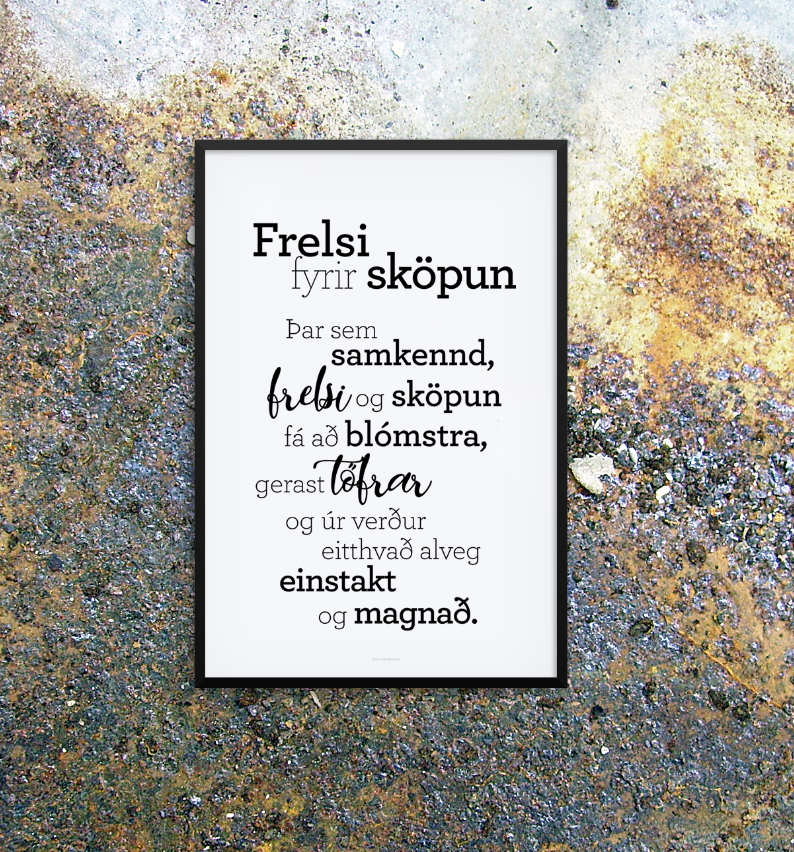 Frelsi
fyrir sköpun
Þar sem
samkennd,
frelsi og sköpun
fá að blómstra,
gerast töfrar
og úr verður
eitthvað alveg
einstakt
og magnað.